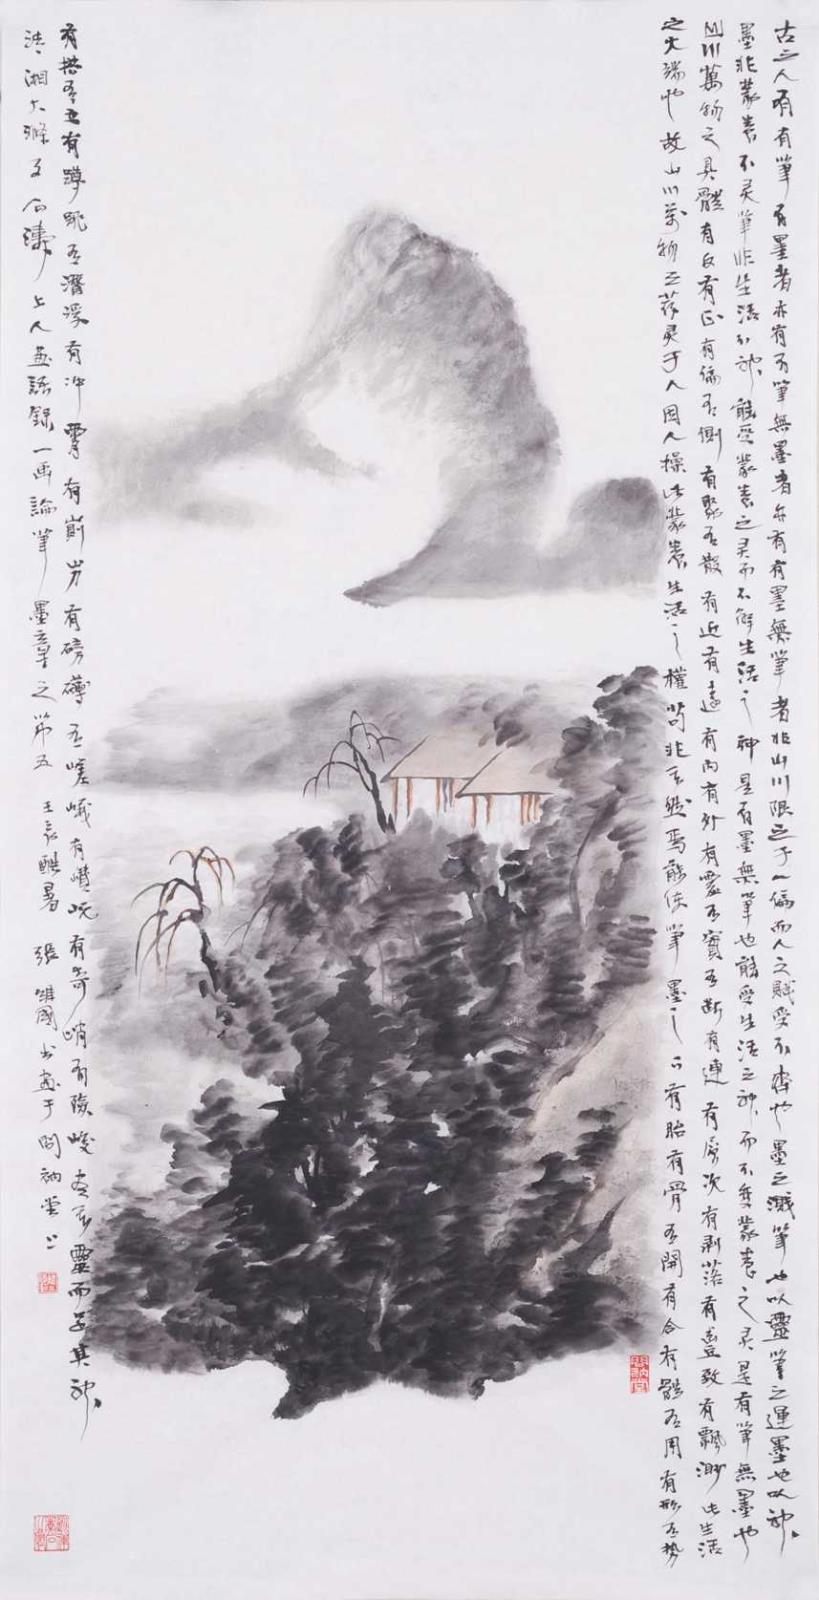 古之人有有筆有墨者亦有有筆無墨者亦有有墨無筆者非山川限之于人偏而人之賦受不齊也墨之濺筆也以靈筆之運墨也以神
墨非蒙養不灵筆非生活不神能受蒙養之灵而不解生活之神是有墨無筆也能受生活之神而不變蒙養之灵是有筆無墨也
山川萬物之具體有反有正有偏有側有聚有散有近有遠有內有外有虛有實有斷有連有層次有剝落有豐致有飄渺此生活
之大端也故山川萬物之荐灵于人因人操此蒙養生活之權苟非其然焉能使筆墨之下有胎有骨有開有合有體有用有形有勢
有拱有立有蹲跳有潛深有沖霄有崱屴有磅礴有嵯峨有巑岏有奇峭有險峻盡其靈而足其神
清湘大滌子石濤上人畫語錄一画論筆墨章之第五 壬辰酷暑 張國書畫于問衲堂上